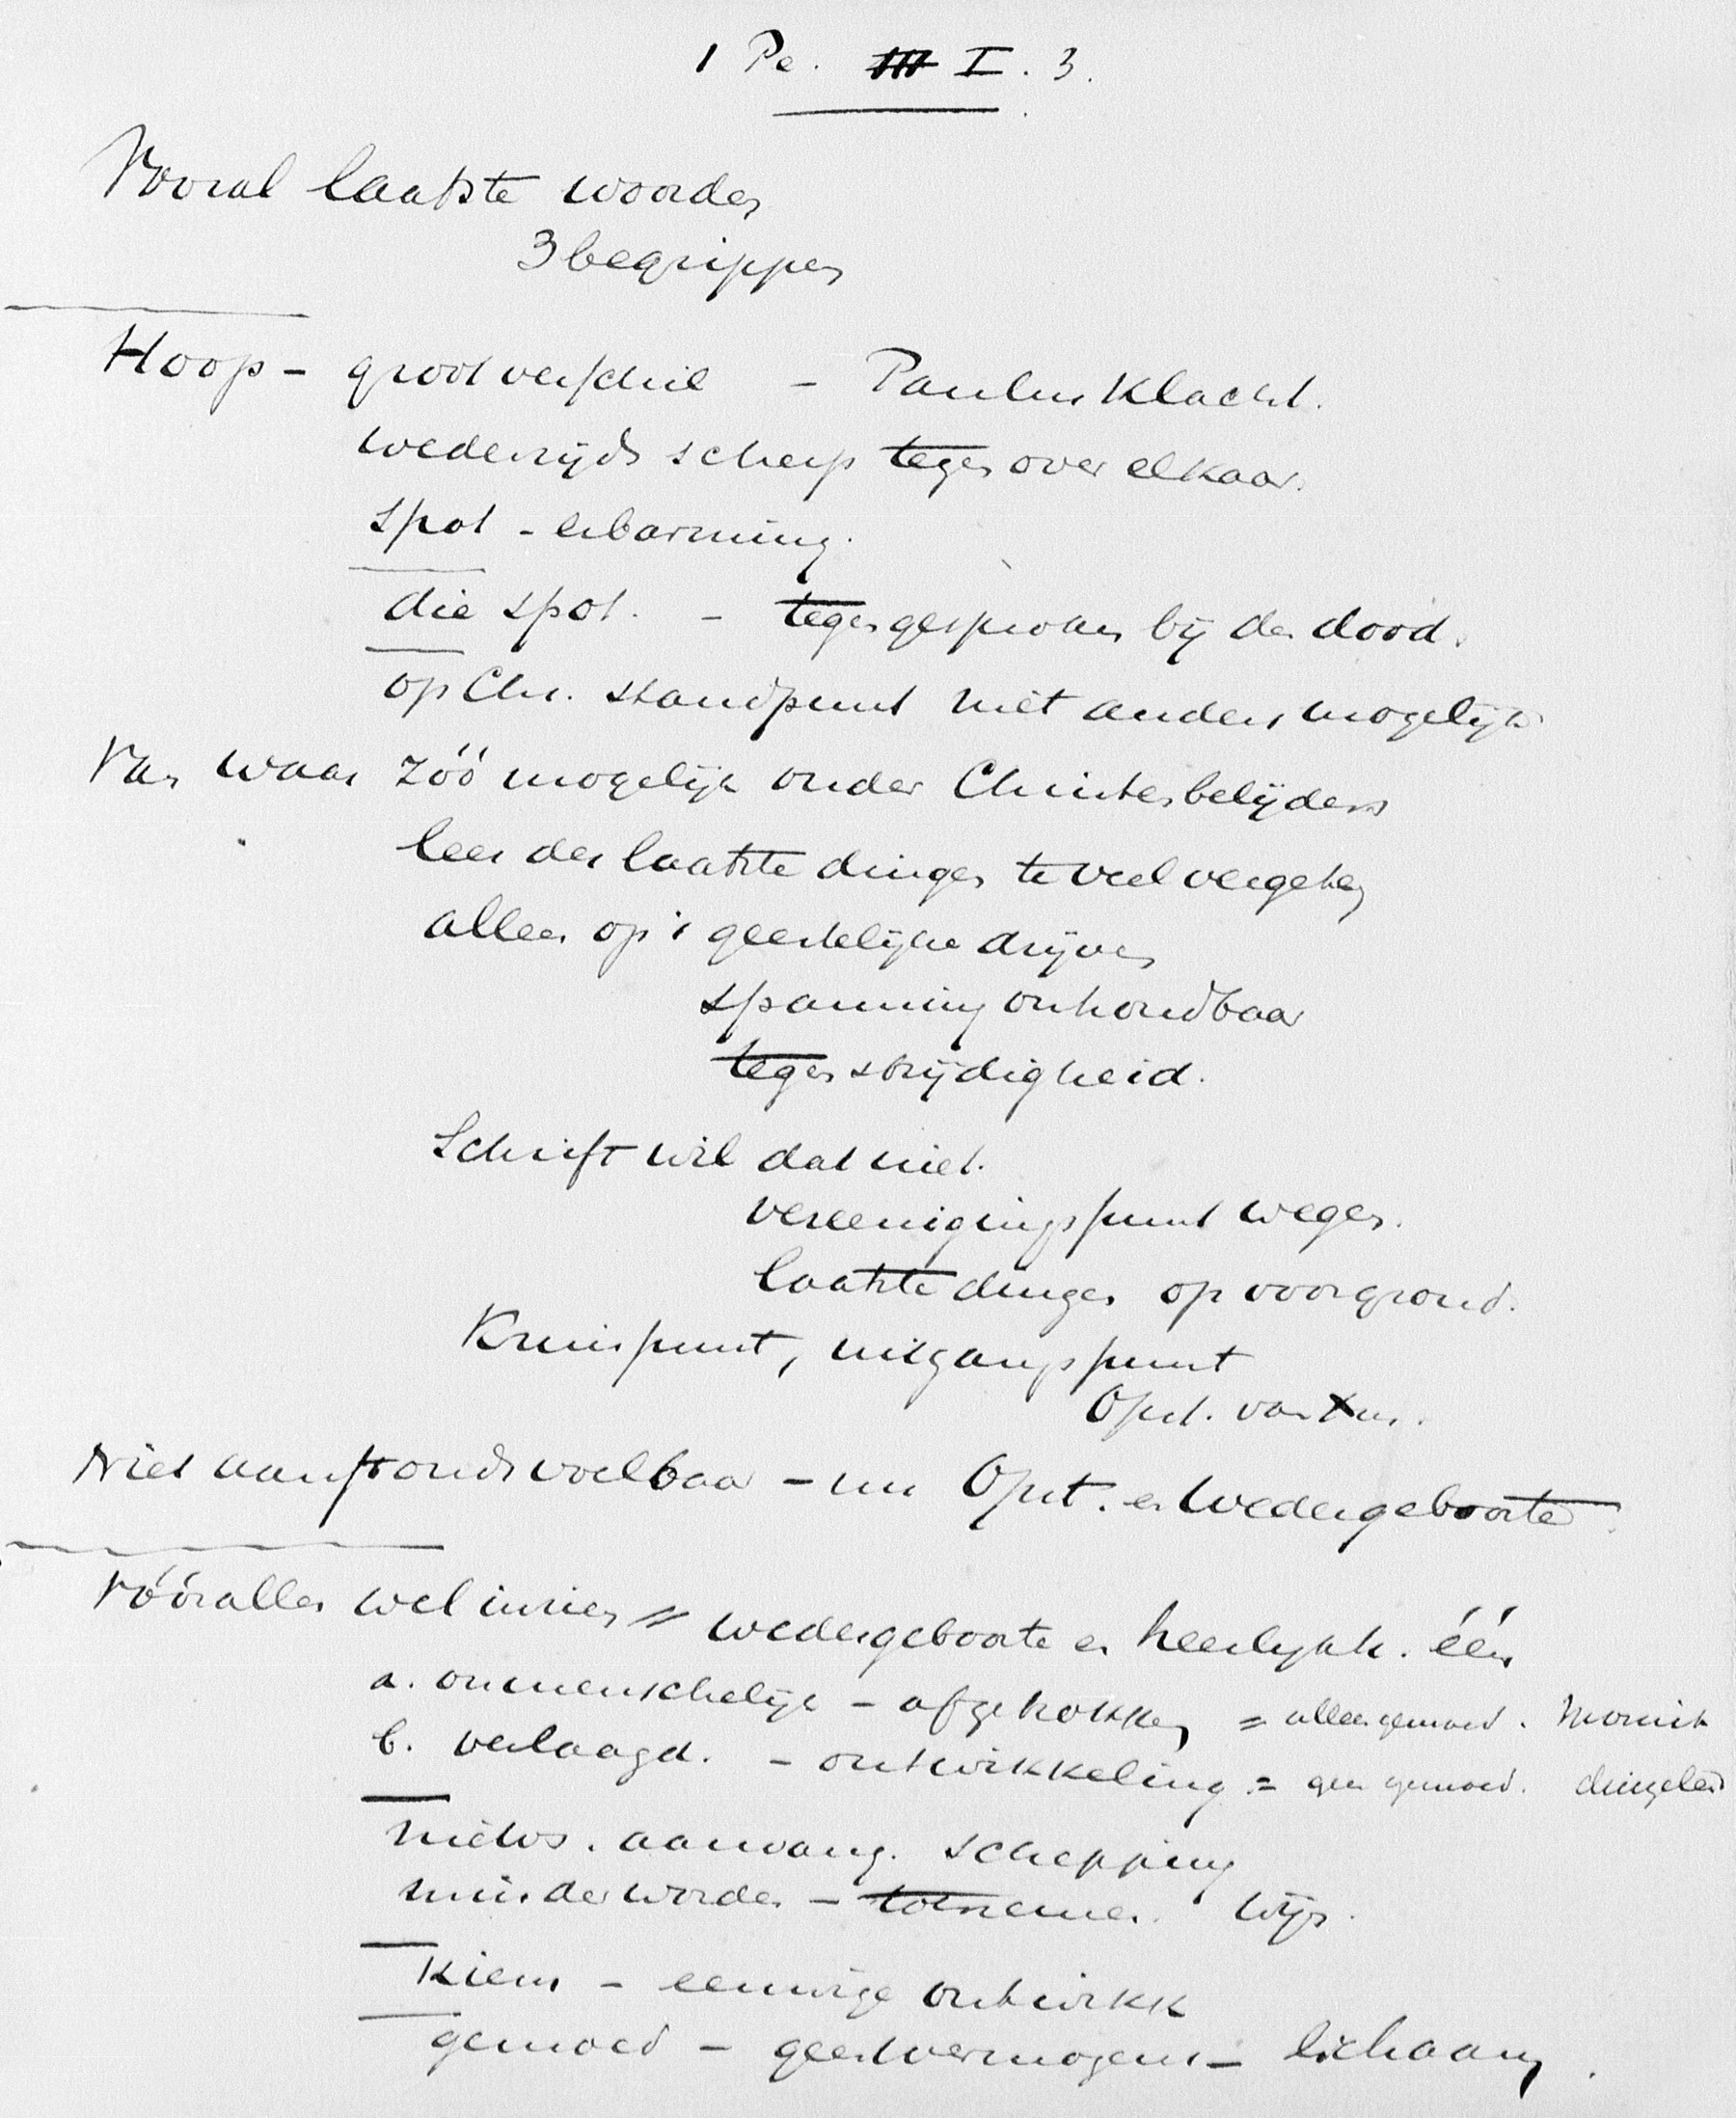 1 Pe. III I. 3.
Vooral laatste woorden
3 begrippen
Hoop - groot verschil - Paulus klacht.
wederzijds scherp tegenover elkaar.
spot - erbarming.
die spot. - tegengesproken bij den dood.
op Chr. standpunt niet anders mogelijk
Van waar zóó mogelijk onder Christusbelijders
leer der laatste dingen te veel vergeten
alleen op 't geestelijke drijven
spanning onhoudbaar
tegenstrijdigheid.
Schrift wil dat niet.
vereenigingspunt wegen.
laatste dingen op voorgrond.
Kruispunt, uitgangspunt
Opst. van Xus.
Niet aanstonds voelbaar - nu Opst. en Wedergeboorte
Vóór alles wel inzien = wedergeboorte en heerlijkh. één
a. onmenschelijk - afgetrokken = alleen gemoed. Monnik
b. verlaagd. - ontwikkeling = geen gemoed.
niets. aanvang. schepping
minder worden - toenemen. wijs.
Kiem - eeuwige ontwikk
gemoed - geestvermogens - lichaam.